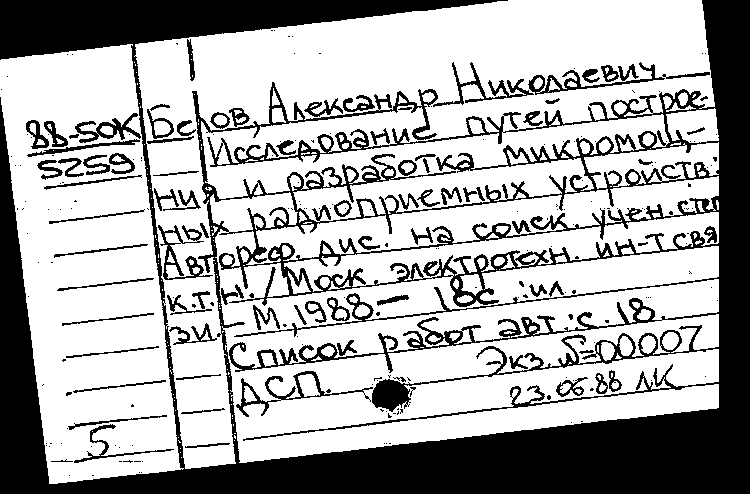 88-50К Белов, Александр Николаевич.
5259 Исследование путей построе-
ния и разработка микромощ-
ных радиоприемных устройств:
Автореф. дис. на соиск. учен. степ
к.т.н. / Моск. электротехн. ин-т свя
зи. - М., 1988. - 18с .: ил.
Список работ авт.: с. 18.
ДСП. Экз. №00007
23.06.88 ЛК
5